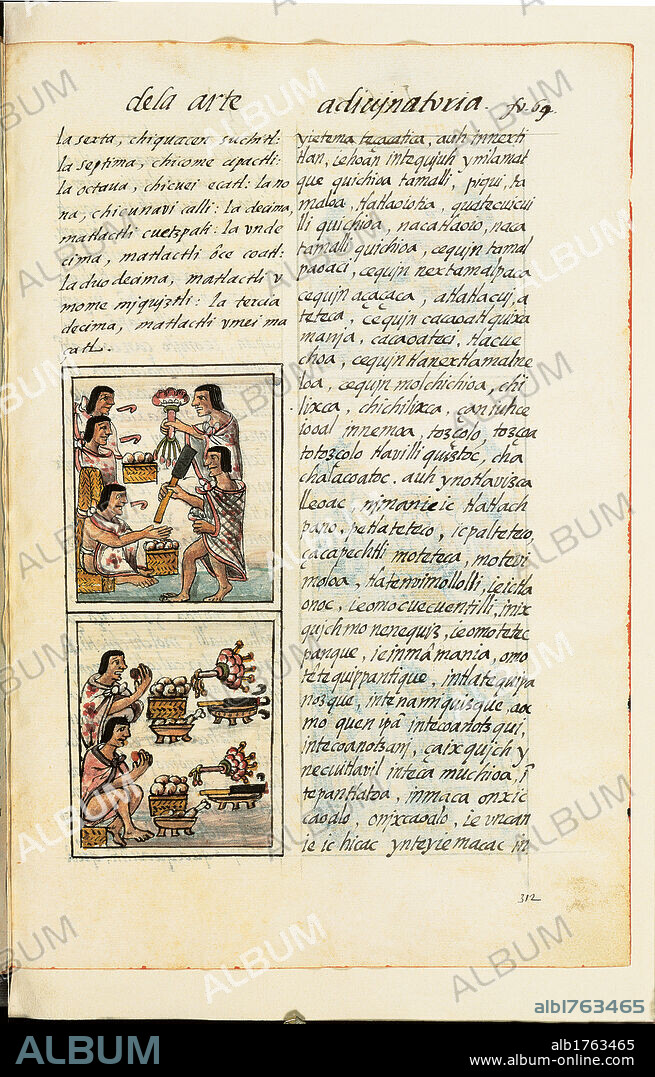 dela arte adiujnaturia. fo. 69
la sexta, chiquacen suchitl:
la septima, chicome cipactli:
la octaua, chicuei ecatl: la no
na, chicunavi calli: la decima,
matlactli cuetzpali: la vnde
cima, matlactli õce coatl:
la duodecima, matlactli v
mome mjqujztli: la tercia
decima, matlactli vmei ma
çatl.
yietema tecacatica, auh in nexti
tlan, iehoãn intequjuh ymlamat
que quichioa tamalli, piqui, ta
maloa, tlatlaoioia, quatecuicui
lli quichioa, nacatlaoio, naca
tamalli quichioa, cequjn tamal
paoaci, cequjn nextamalpaca
cequjn açaçaca, atlatlacuj, a
teteca, cequjn cacaoatl quixa
manja, cacaoateci, tlacue
choa, cequjn tlanextlamalne
loa, cequjn molchichioa, chi
lixca, chichilixca, can iuhce
iooal innemoa, tozcolo, tozcoa
totozcolo tlavilli quiztoc, cha
chalacatoc. auh ynotlavizca
lleoac, njmanieic tlatlach
pano, petlateteco, icpalteteco,
çacapechtli moteteca, motevi
moloa, tlatenvimollolli, ieictla
onoc, ieomocuecuentilli, inix
qujchmo nenequiz, ieomotetec
panque, ieinmãmania, omo
tẽtequippantique, intlatequipa
nozque, intenamiquizque, aoc
mo quen ipã intecoanotzqui,
intecoanotzanj, çaixqujch y
necuitlavil inteca muchioa, î
tepantlatoa, inmaca onxic
caoalo, onjxcaoalo, ie vncan
ie ic hicac ynteyiemacac in
312
ALBUM
alb1763465
alb1763465
www.album-online.com